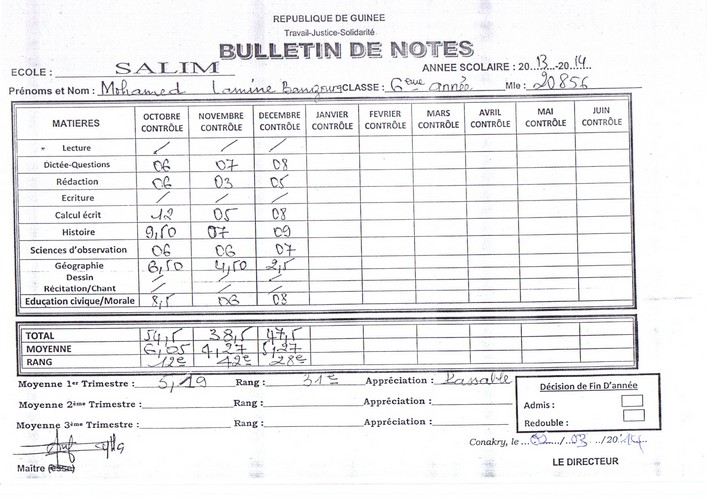 REPUBLIQUE DE GUINEE
Travail-Justice-Solidarité
BULLETIN DE NOTES
ECOLE : SALIM ANNEE SCOLAIRE : 2013-2014
Prénoms et Nom : Mohamed Lamine CLASSE : 6ème année Mle : 20856
MATIERES OCTOBRE CONTRÔLE NOVEMBRE CONTRÔLE DECEMBRE CONTRÔLE JANVIER CONTRÔLE FEVRIER CONTRÔLE MARS CONTRÔLE AVRIL CONTRÔLE MAI CONTRÔLE JUIN CONTRÔLE
" Lecture / / /
Dictée-Questions 06 07 08
Rédaction 06 03 05
Ecriture / / /
Calcul écrit 12 05 08
Histoire 9,50 07 09
Sciences d'observation 06 06 07
Géographie 6,50 4,50 2,5
Dessin / / /
Récitation/Chant / / /
Education civique/Morale 8,5 06 08
TOTAL 54,5 38,5 47,5
MOYENNE 6,05 4,27 5,27
RANG 12e 42e 28e
Moyenne 1er Trimestre : 5,19 Rang : 31e Appréciation : Passable
Moyenne 2ème Trimestre : Rang : Appréciation :
Moyenne 3ème Trimestre : Rang : Appréciation :
Décision de Fin D'année
Admis :
Redouble :
Conakry, le 02/03/2014
Maître (esse)
LE DIRECTEUR